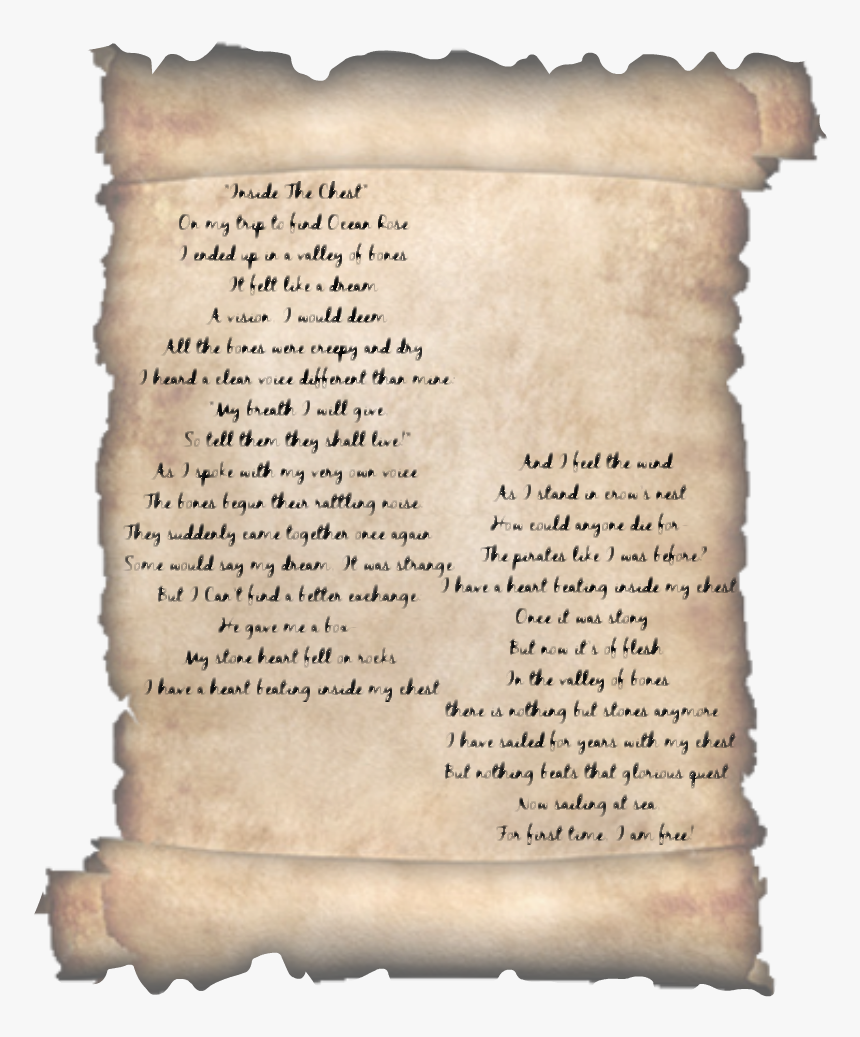 "Inside The Chest"
On my trip to find Ocean Rose
I ended up in a valley of bones
It felt like a dream
A vision I would deem
All the bones were creepy and dry
I heard a clear voice different than mine
"My breath I will give
So tell them they shall live!"
As I spoke with my very own voice
The bones begun their rattling noise
They suddenly came together once again
Some would say my dream It was strange
But I Can't find a better exchange
He gave me a box
My stone heart fell on rocks
I have a heart beating inside my chest
And I feel the wind
As I stand in crow's nest
How could anyone die for
The pirates like I was before?
I have a heart beating inside my chest
Once it was stony
But now it's of flesh
In the valley of bones
there is nothing but stones anymore
I have sailed for years with my chest
But nothing beats that glorious quest
Now sailing at sea
For first time I am free!